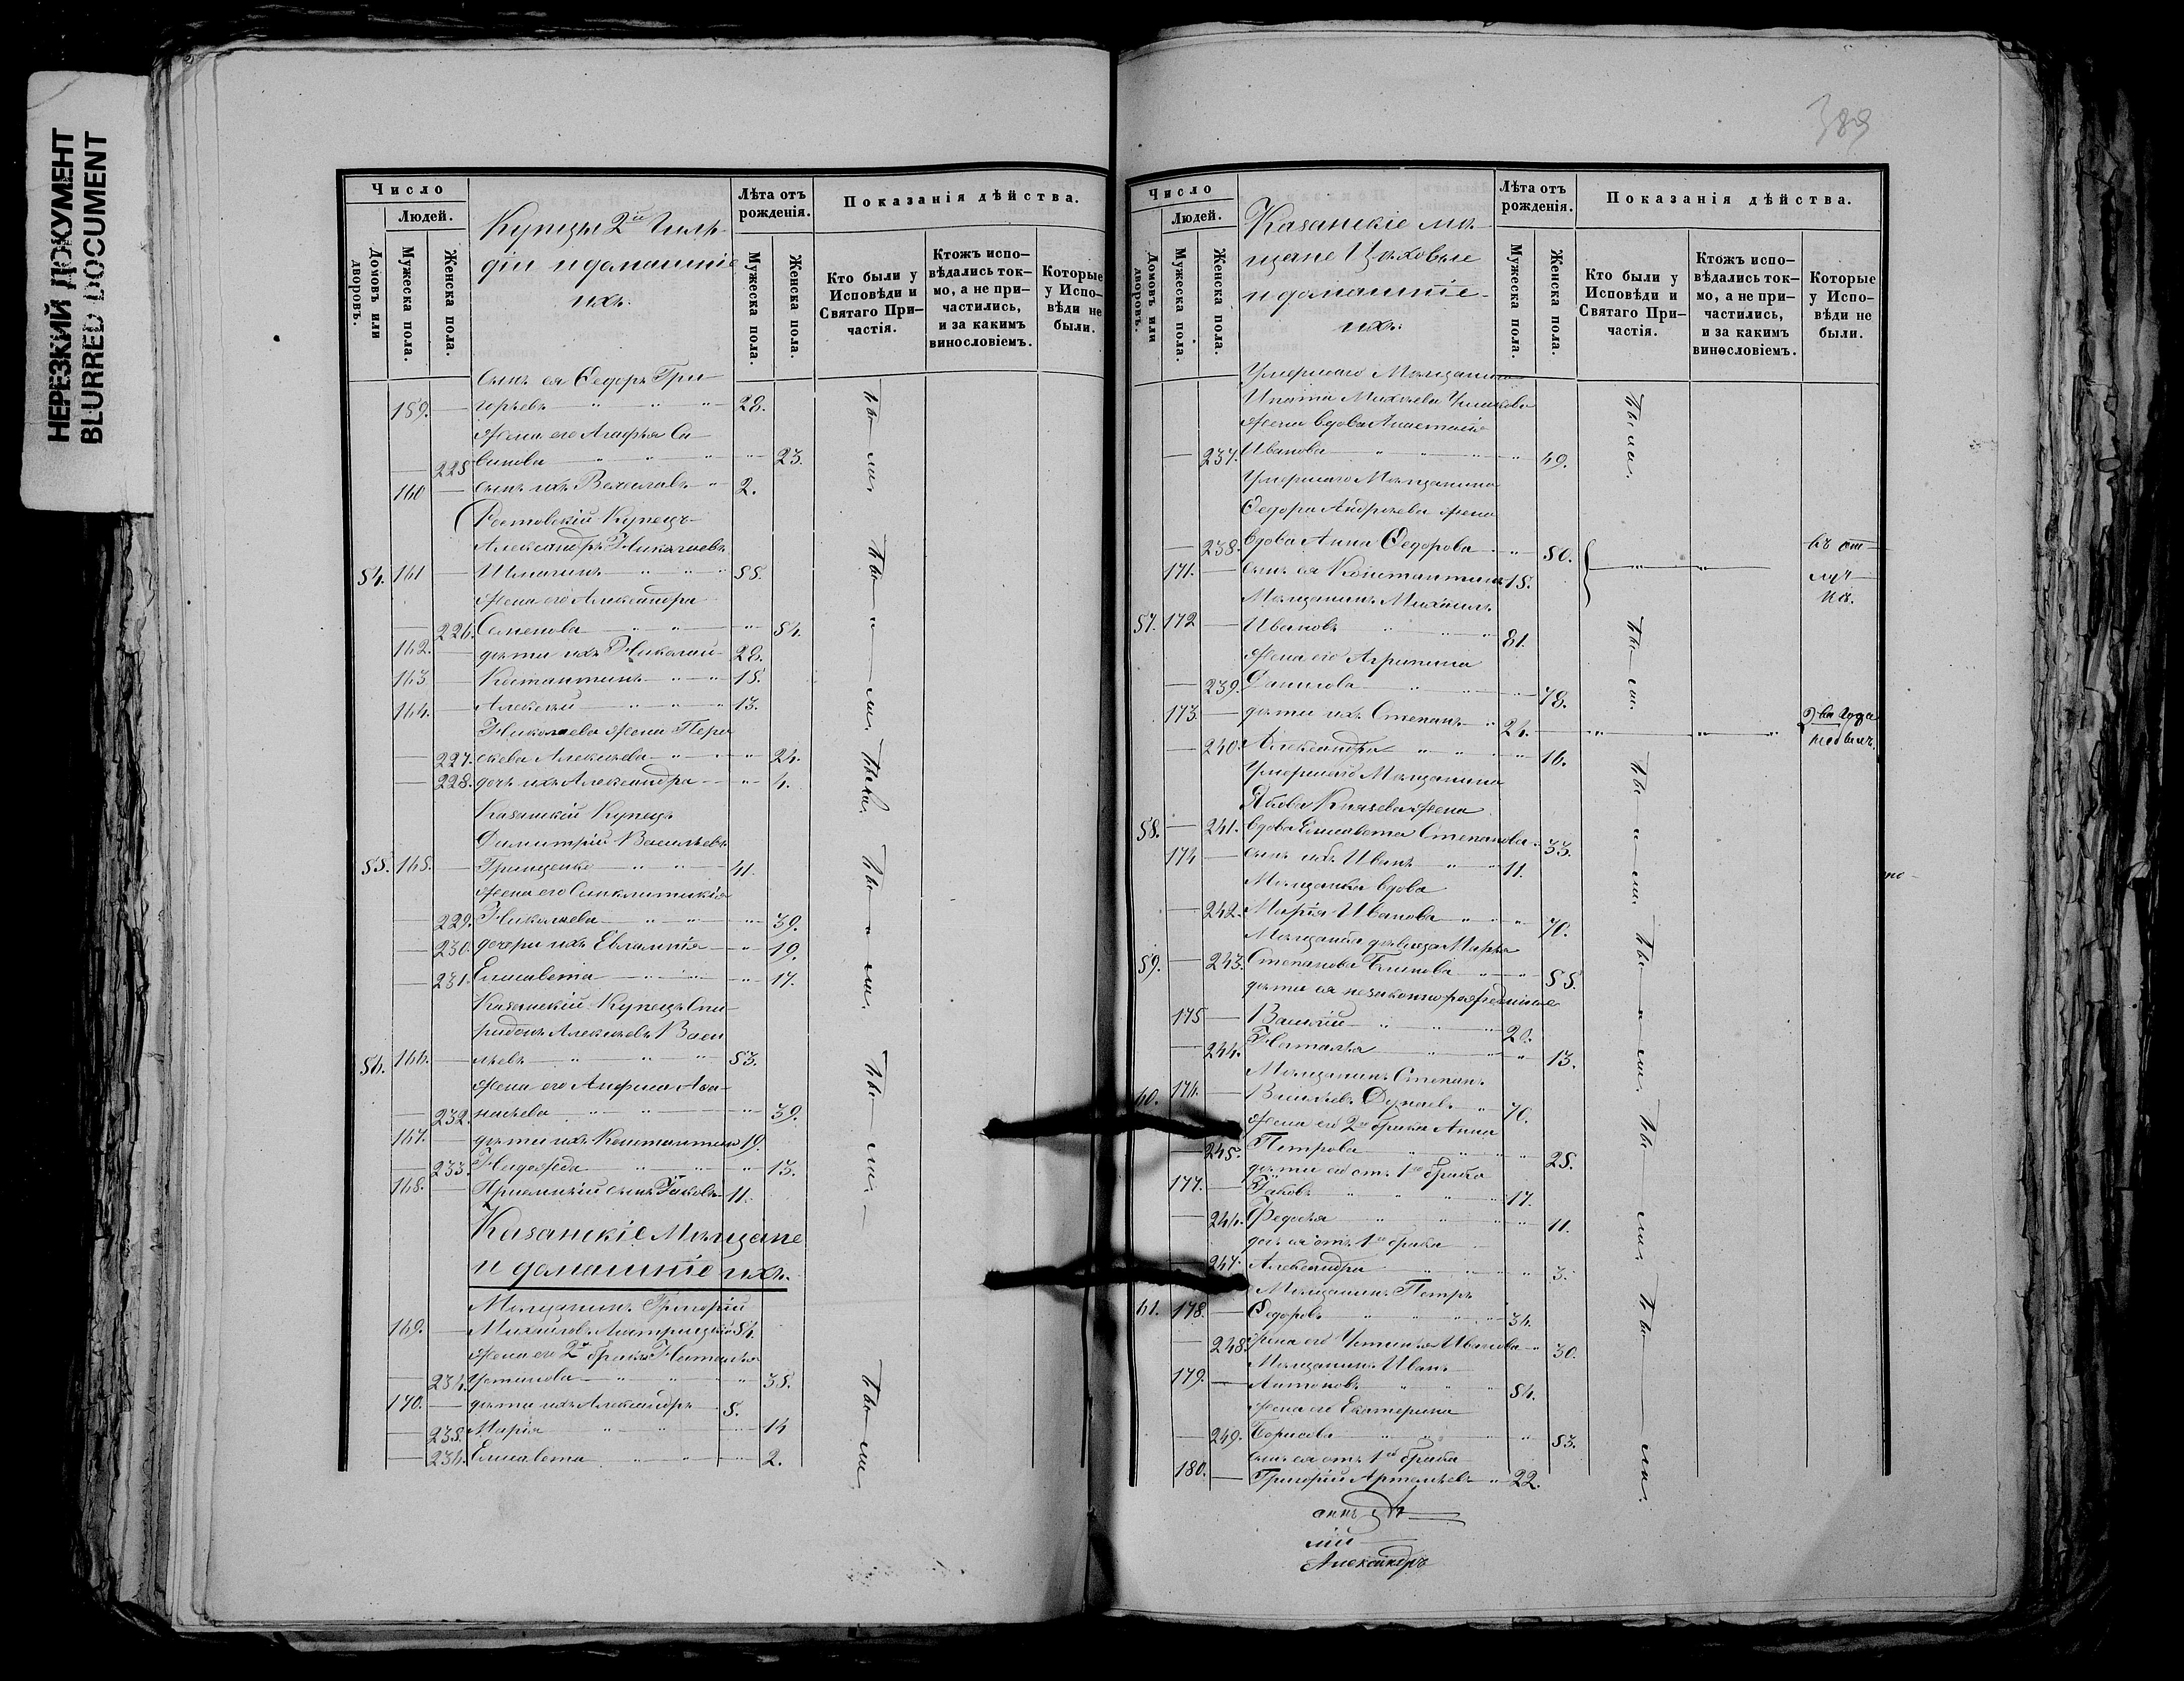 НЕРЕЗКИЙ ДОКУМЕНТ
BLURRED DOCUMENT
Число
Людей.
Домовъ или дворовъ.
Мужеска пола.
Женска пола.
Купцы 2й Гиль-
діи и домашніе
ихъ.
Лѣта отъ рожденія.
Мужеска пола.
Женска пола.
Показанія дѣйства.
Кто были у Исповѣди и Святаго При-частія.
Ктожъ испо-вѣдались ток-мо, а не при-частились, и за какимъ винословіемъ.
Которые у Испо-вѣди не были.
Сынъ ея Ѳедоръ Гри-
159. — горьевъ — " — " — " 28.
Жена его Агафья Са-
— 225 винова — " — " — " 23.
160 — сынъ ихъ Вячеславъ — " 2.
Ростовскій Купецъ
Александръ Николаевъ
54. 161 — " — " 55.
Жена его Александра
— 226. Семенова — " — " 54.
162. — дѣти ихъ Николай — 28.
163 — Константинъ — " — " 15.
164. — Алексѣй — " — " 13.
Николаева жена Пера
— 227. скева Алексѣева — " — " 24.
— 228. дочь ихъ Александра — " 4.
Казанскій Купецъ
Димитрій Васильевъ
55. 165. — Грищенко — " — " 41.
Жена его Синклитикія
— 229. Николаева — " — " 39.
— 230. дочери ихъ Евлампія — " 19.
— 231. Елисавета — " — " 17.
Казанскій Купецъ Спи-
ридонъ Алексѣевъ Васи
56. 166. — льевъ — " — " 53.
Жена его Анфиса Аѳа-
— 232. насьева — " — " 39.
167. — дѣти ихъ Константинъ 19.
— 233. Надежда — " — " 13.
168. — Пріемный сынъ Іаковъ — 11.
Казанскіе Мѣщане
и домашніе ихъ.
Мѣщанинъ Григорій
169. — Михайловъ 54.
Жена его 2го брака Наталья
— 234. Устинова — " — " 35.
170. — дѣти ихъ Александръ 5.
— 235. Марія — " — " 14
— 236. Елисавета — " — " 2.
389
Число
Людей.
Домовъ или дворовъ.
Мужеска пола.
Женска пола.
Казанскіе мѣ-
щане Цеховые
и домашніе
ихъ.
Лѣта отъ рожденія.
Мужеска пола.
Женска пола.
Показанія дѣйства.
Кто были у Исповѣди и Святаго При-частія.
Ктожъ испо-вѣдались ток-мо, а не при-частились, и за какимъ винословіемъ.
Которые у Испо-вѣди не были.
Умершаго Мѣщанина
Ипата Михѣева
жена вдова Анастасія
— 237. Иванова — " — " 49.
была.
Умершаго Мѣщанина
Ѳедора Андреева жена
— 238. вдова Анна Ѳедорова — " 50.
171. — сынъ ея Константинъ 15.
въ от-
луч-
кѣ.
Мѣщанинъ Михаилъ
57. 172 — Ивановъ " — " 81.
Жена его Агрипина
— 239. Данилова — " — " 78.
173. — дѣти ихъ Степанъ — " 24.
два года
не былъ
— 240. Александра " — " 16.
Умершаго Мѣщанина
Якова Князева жена
58. — 241. вдова Елисавета Степанова — 33.
174 — сынъ ихъ Иванъ — " 11.
Мѣщанка вдова
— 242. Марія Иванова — " 70.
Мѣщанка дѣвица Марѳа
59. — 243. Степанова Блинова — " 55.
дѣти ея незаконнорожденные
175 — Василій — " — " 20.
— 244. Наталья — " — " 13.
Мѣщанинъ Степанъ
60. 176. — Васильевъ Дунаевъ — " 70.
Жена его 2го брака Анна
— 245. Петрова — " — " 25.
дѣти его отъ 1го брака
177. — Іаковъ " — " 17.
— 246. Ѳедосья — " — " 11.
дочь ея отъ 1го брака
— 247. Александра — " — " 3.
Мѣщанинъ Петръ
61. 178. — Ѳедоровъ " — " 34.
— 248. Жена его Устинья Иванова — " 30.
Мѣщанинъ Иванъ
179. — Антоновъ — " — " 54.
Жена его Екатерина
— 249. Борисова — " — " 53.
сынъ ея отъ 1го брака
180. — Григорій Артемьевъ — " 22.
Александръ